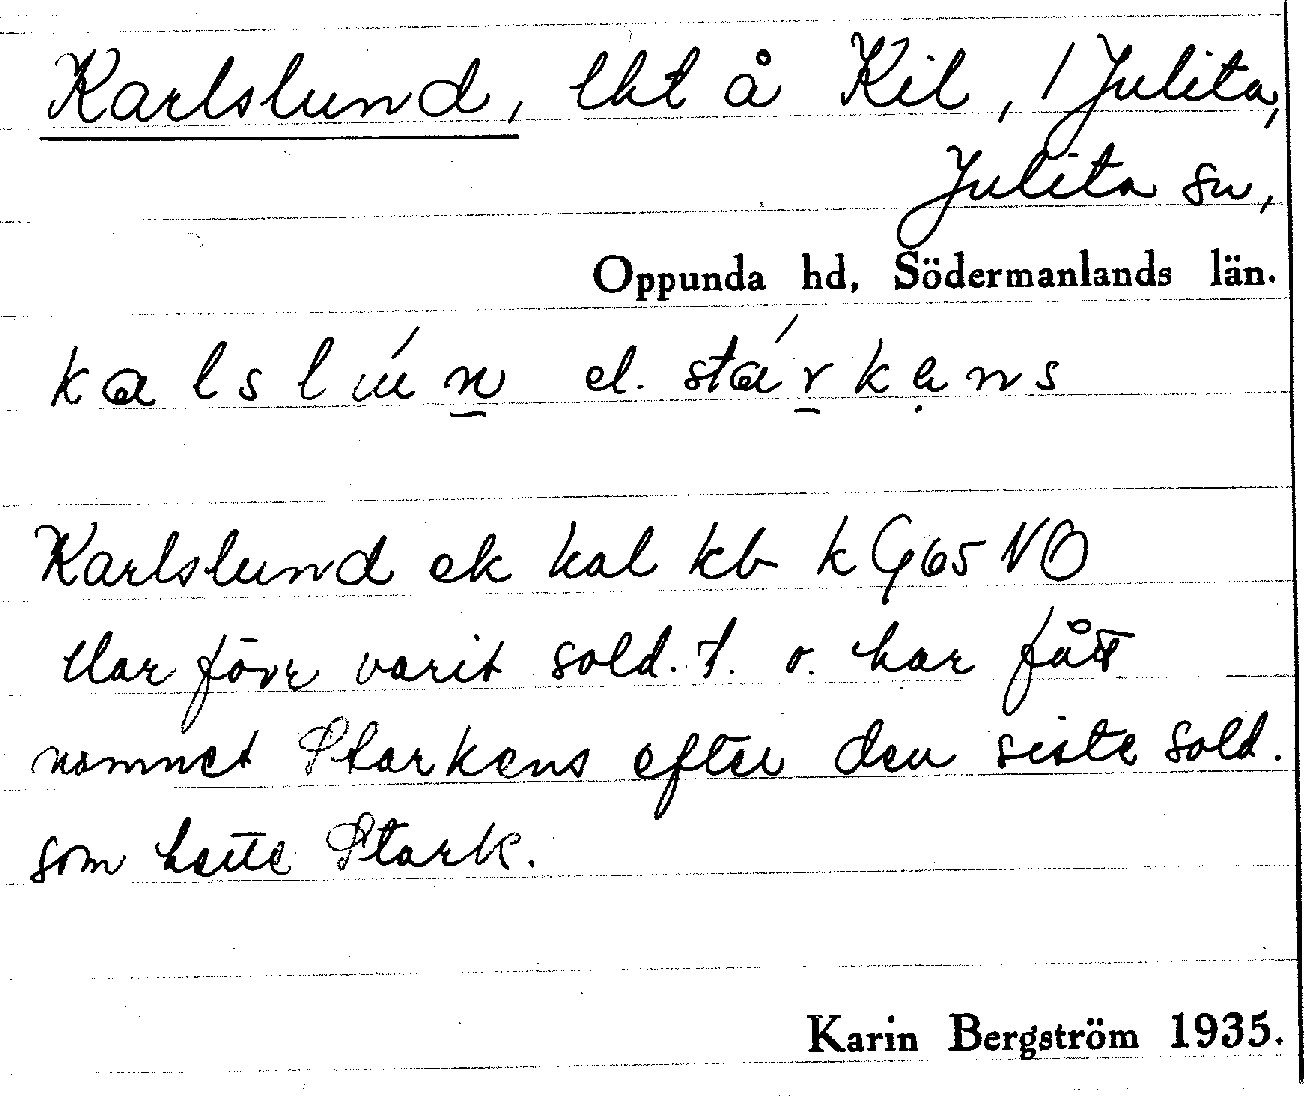 Karlslund, lht å Kil, / Julita,
Julita sn,
Oppunda hd, Södermanlands län.
kalslún el. stárkens
Karlslund ek kal kb k G65 NO
Har förr varit sold. t. o. har fått
namnet Starkens efter den siste sold.
som hette Stark.
Karin Bergström 1935.